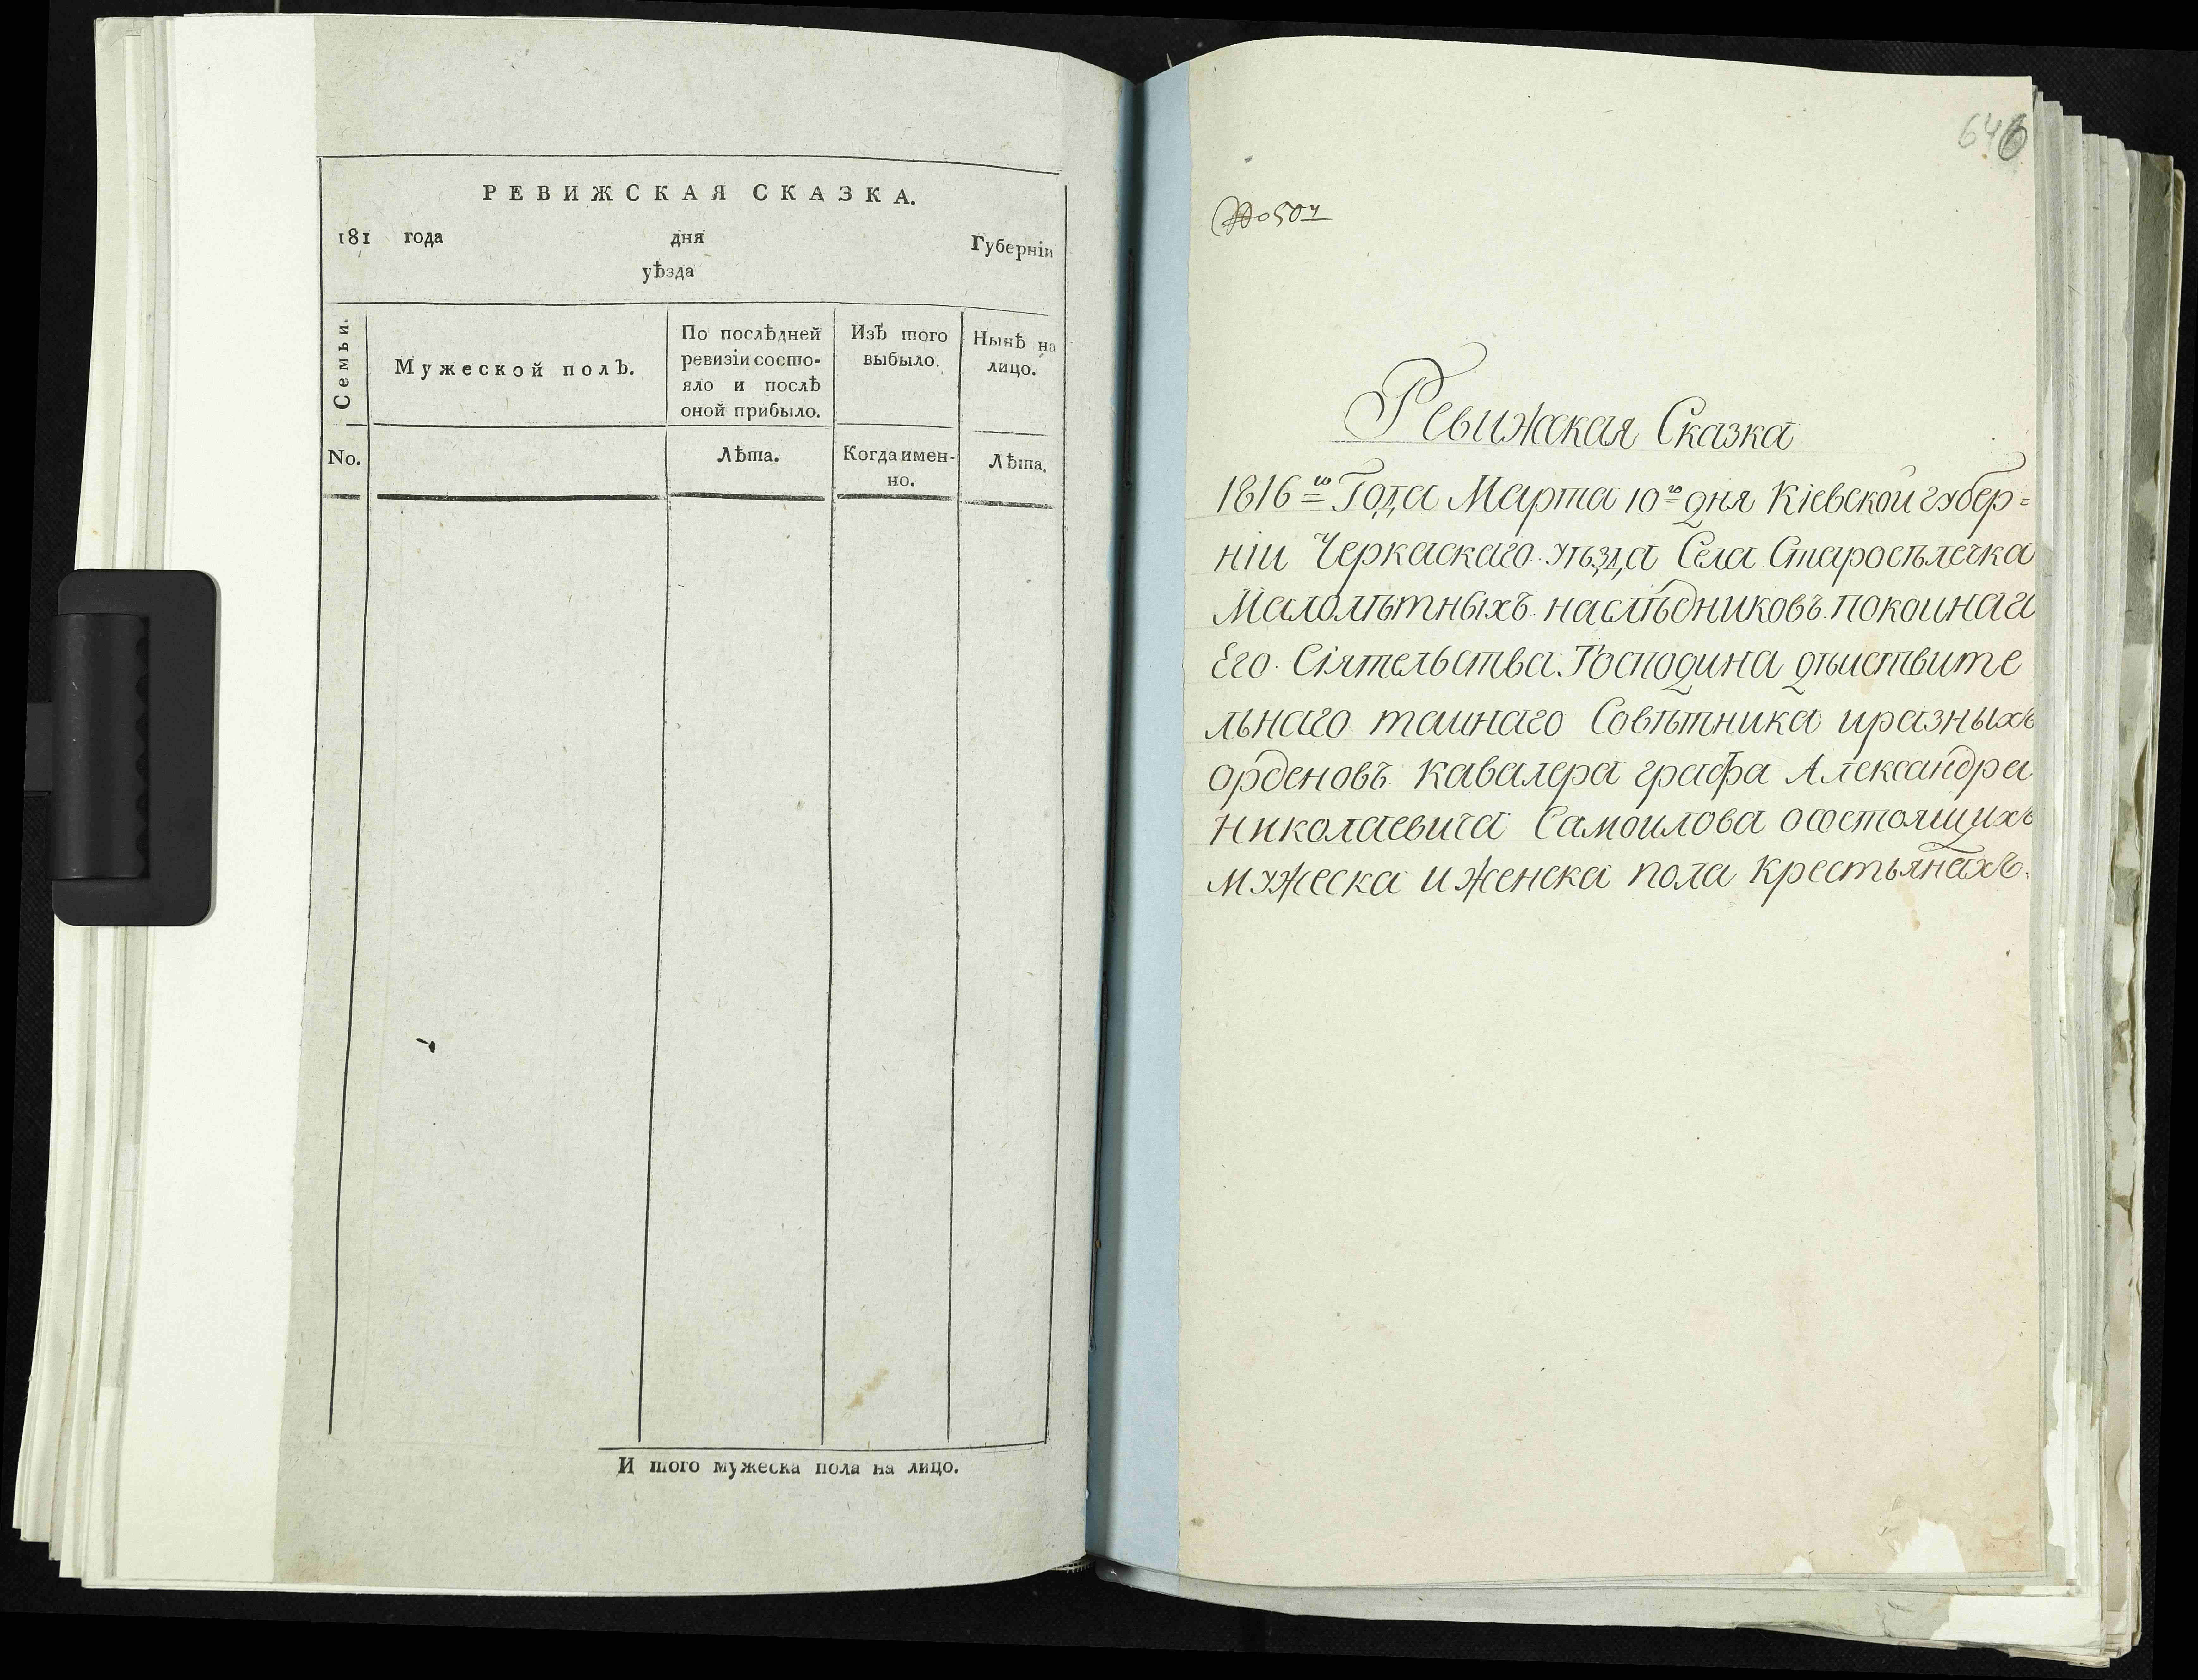 РЕВИЖСКАЯ СКАЗКА.
181 года дня Губерніи
уѣзда
Семьи.
Мужеской полъ.
По послѣдней
ревизіи состо-
яло и послѣ
оной прибыло.
Изъ того
выбыло.
Нынѣ на
лицо.
No.
Лѣта.
Когда имен-
но.
Лѣта.
И того мужеска пола на лицо.
646
№ 507
Ревижская Сказка
1816го Года Марта 10го дня Кіевской губер=
ніи Черкаскаго уѣзда Села Старосѣлечка
Малолѣтныхъ наслѣдниковъ покоинаго
Его Сіятельства Господина дѣиствите
льнаго таинаго Совѣтника и разныхъ
орденовъ Кавалера графа Александра
Николаевича Самоилова о состоящихъ
мужеска и женска пола крестьянахъ.